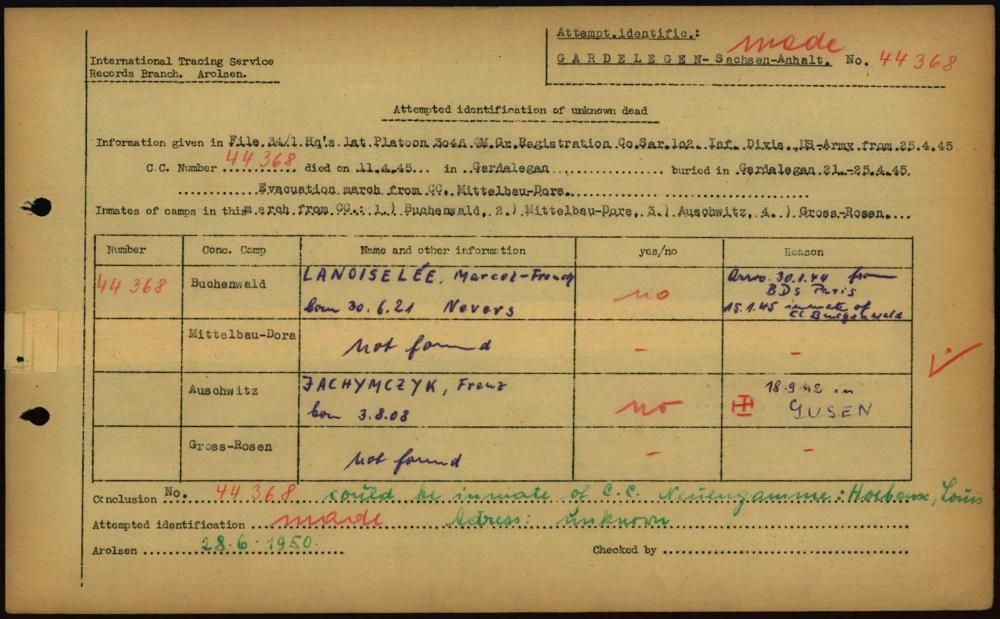 Attempt.identific.: made
International Tracing Service
GARDELEGEN-Sachsen-Anhalt. No. 44368
Records Branch. Arolsen.
Attempted identification of unknown dead
Information given in File 34/1 Hq's 1st Platoon 3o4A QM.Gr.Registration Co.Sar.1o2. Inf. Divis.,US-Army from 25.4.45
C.C. Number 44368 died on 11.4.45. in Gardelegan buried in Gardelegan 21.-25.4.45
Evacuation march from CC. Mittelbau-Dora.
Inmates of camps in this march from CC.: 1.) Buchenwald, 2.) Mittelbau-Dora, 3.) Auschwitz, 4.) Gross-Rosen.
Number Conc. Camp Name and other information yes/no Reason
44368 Buchenwald LANOISELÉE, Marcel- no 30.1.44 from
BDS Paris
born 30.6.21 Nevers 15.1.45 inmate of
CC
Mittelbau-Dora not found - -
Auschwitz ZACHYMCZYK, Franz no 18.9.42 in
born 3.8.08 GUSEN
Gross-Rosen not found - -
Conclusion No. 44368 could be inmate of C.C. Neuengamme: Louis
Attempted identification made Adress: unknown
Arolsen 28.6.1950. Checked by